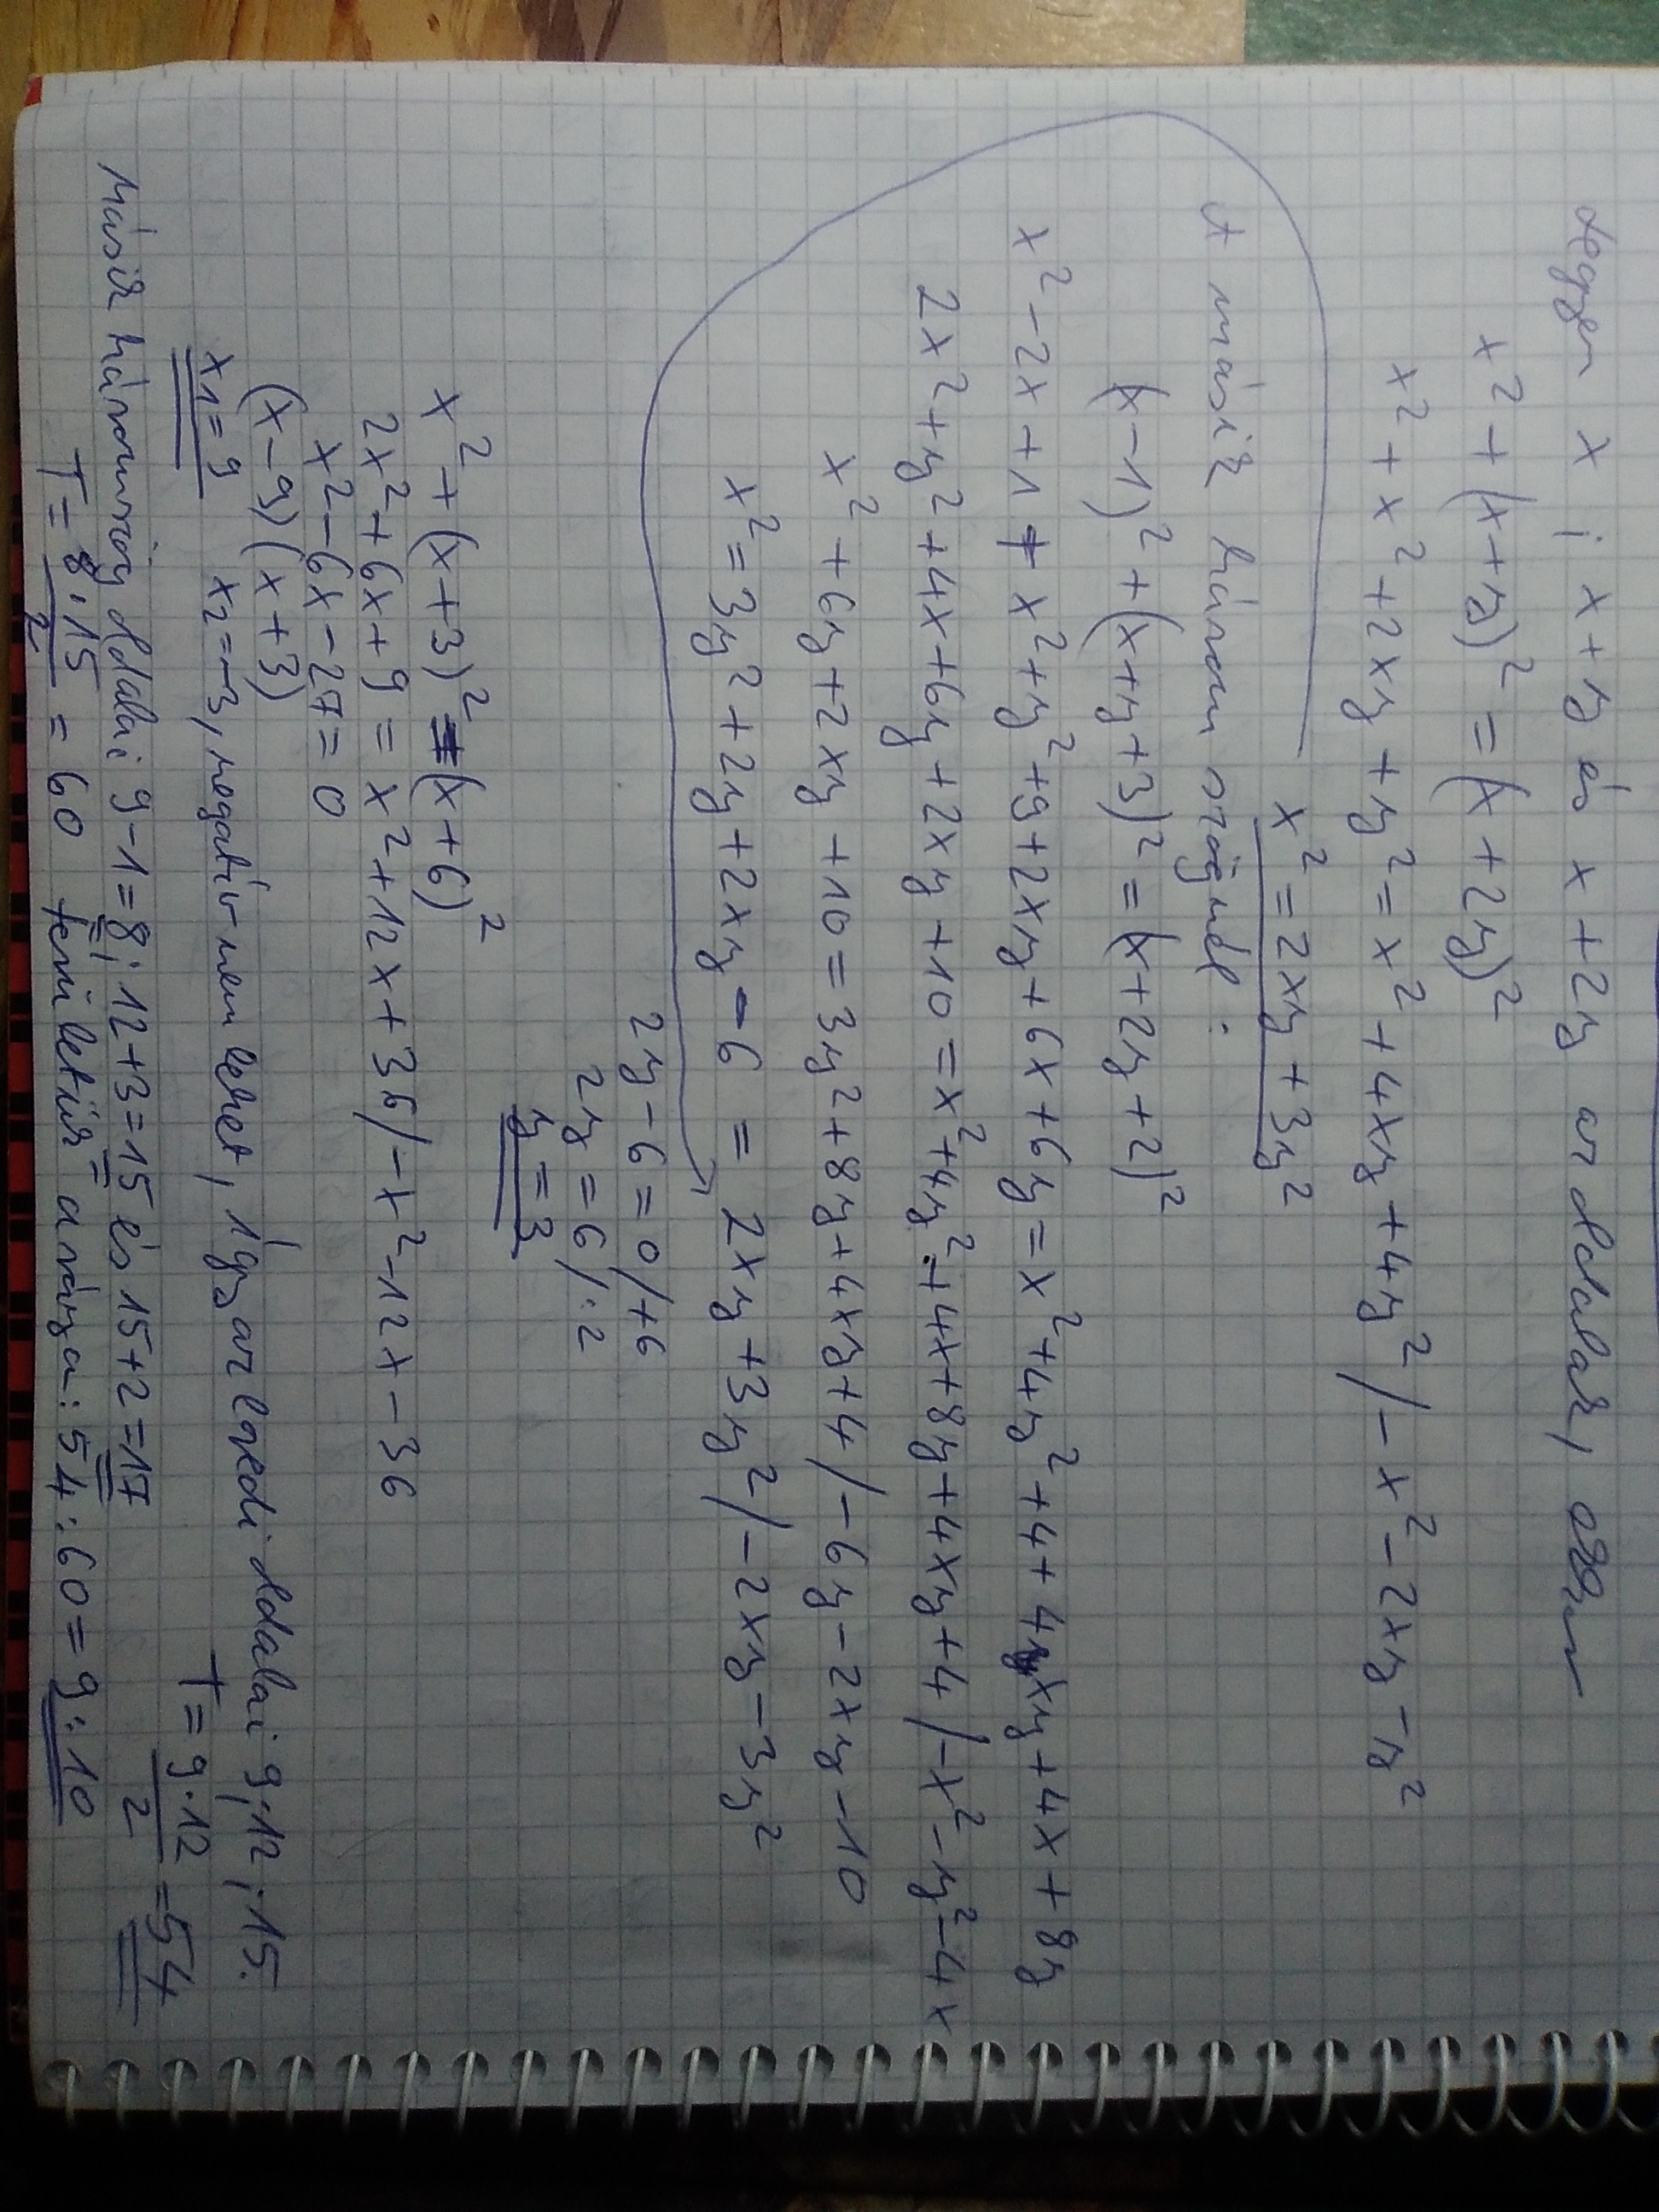 Legyen x ; x+y és x+2y az oldalak, ekkor
x² + (x+y)² = (x+2y)²
x² + x² + 2xy + y² = x² + 4xy + 4y² / -x² - 2xy - y²
x² = 2xy + 3y²
A másik három szögnél :
(x-1)² + (x+y+3)² = (x+2y+2)²
x² - 2x + 1 + x² + y² + 9 + 2xy + 6x + 6y = x² + 4y² + 4 + 4xy + 4x + 8y
2x² + y² + 4x + 6y + 2xy + 10 = x² + 4y² + 4x + 8y + 4xy + 4 / -x² - y² - 4x
x² + 6y + 2xy + 10 = 3y² + 8y + 4xy + 4 / -6y - 2xy - 10
x² = 3y² + 2y + 2xy - 6 = 2xy + 3y² / -2xy - 3y²
2y - 6 = 0 / +6
2y = 6 / :2
y = 3
x² + (x+3)² = (x+6)²
2x² + 6x + 9 = x² + 12x + 36 / -x² - 12x - 36
x² - 6x - 27 = 0
(x-9)(x+3)
x1 = 9 x2 = -3, negatív nem lehet, így az eredi oldalai 9; 12 ; 15.
T = 9·12/2 = 54
Másik háromszög oldalai 9-1=8; 12+3=15 és 15+2=17
T = 8·15/2 = 60 területük aránya: 54 : 60 = 9 : 10